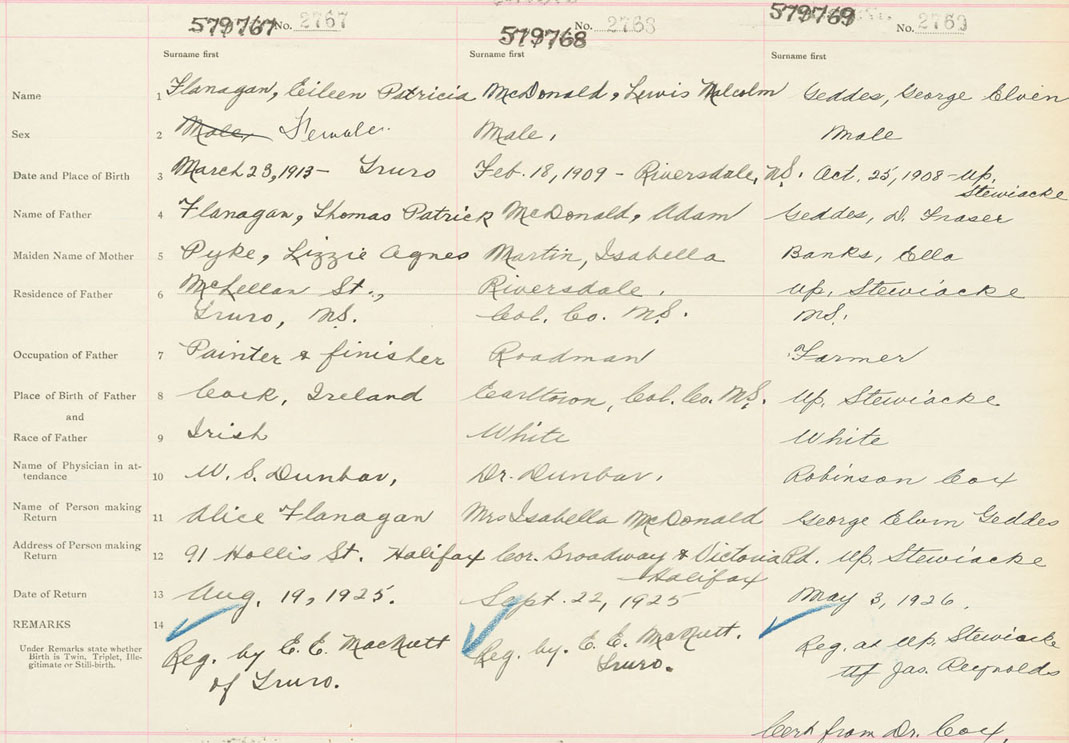 579767 No. 2767 579768 No. 2768 579769 No. 2769
Surname first Surname first Surname first
Name 1 Flanagan, Eileen Patricia McDonald, Lewis Malcolm Geddes, George Elvin
Sex 2 Male, Female. Male, Male
Date and Place of Birth 3 March 23, 1913 - Truro Feb. 18, 1909 - Riversdale, N.S. Oct. 25, 1908 - Up.
Stewiacke
Name of Father 4 Flanagan, Thomas Patrick McDonald, Adam Geddes, D. Fraser
Maiden Name of Mother 5 Pyke, Lizzie Agnes Martin, Isabella Banks, Ella
Residence of Father 6 McLellan St., Riversdale, Up. Stewiacke
Truro, N.S. Col. Co. N.S. N.S.
Occupation of Father 7 Painter & finisher Roadman Farmer
Place of Birth of Father 8 Cork, Ireland Earltown, Col. Co. N.S. Up. Stewiacke
and
Race of Father 9 Irish White White
Name of Physician in at-
tendance 10 W. S. Dunbar, Dr. Dunbar, Robinson Cox
Name of Person making
Return 11 Alice Flanagan Mrs Isabella McDonald George Elvin Geddes
Address of Person making
Return 12 91 Hollis St. Halifax Cor. Broadway & Victoria Rd. Up. Stewiacke
Halifax
Date of Return 13 Aug. 19, 1925. Sept. 22, 1925 May 3, 1926.
REMARKS 14
Under Remarks state whether
Birth is Twin, Triplet, Ille-
gitimate or Still-birth.
Reg. by E. E. MacNutt Reg. by. E. E. MacNutt. Reg. at Up. Stewiacke
of Truro. Truro. Jas. Reynolds
Cert from Dr. Cox,